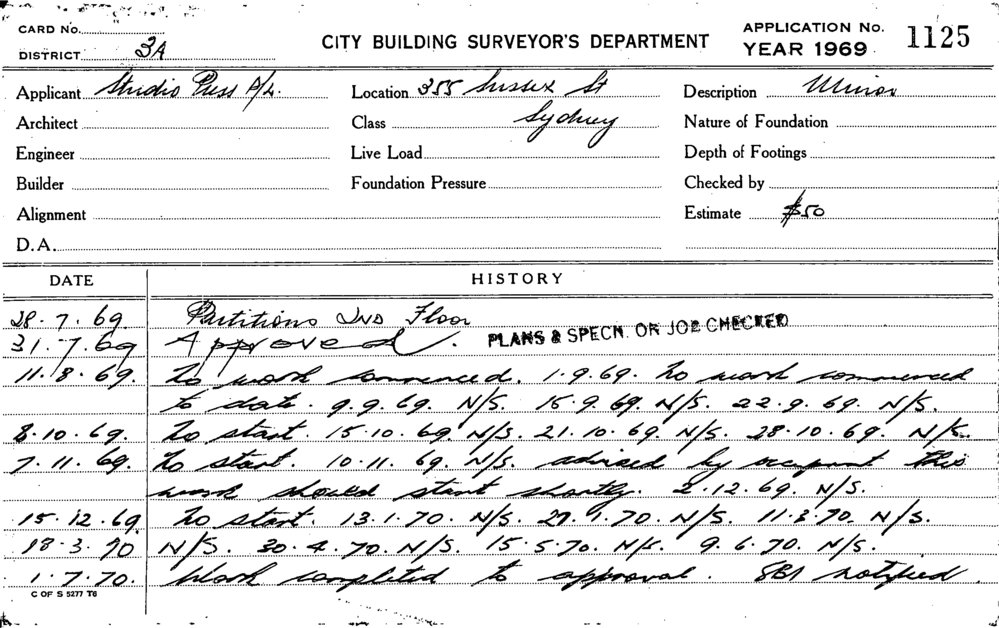 CARD No.
DISTRICT 3A
CITY BUILDING SURVEYOR'S DEPARTMENT
APPLICATION No. 1125
YEAR 1969
Applicant Studio Puss P/L. Location 355 Sussex St Description Minor
Architect Class Sydney Nature of Foundation
Engineer Live Load Depth of Footings
Builder Foundation Pressure Checked by
Alignment Estimate $50
D.A.
DATE HISTORY
28.7.69. Partitions 2ND Floor
31.7.69 Approved. PLANS & SPECN. OR JOB CHECKED
11.8.69. No work commenced. 1.9.69. No work commenced
to date. 9.9.69. N/S. 15.9.69. N/S. 22.9.69. N/S.
8.10.69. No start. 15.10.69 N/S. 21.10.69. N/S. 28.10.69. N/S.
7.11.69. No start. 10.11.69. N/S. advised by occupant this
work should start shortly. 2.12.69. N/S.
15.12.69 No start. 13.1.70. N/S. 29.1.70. N/S. 11.3.70. N/S.
18.3.70 N/S. 30.4.70. N/S. 15.5.70. N/S. 9.6.70. N/S.
1.7.70. Work completed to approval. SBI notified.
C OF S 5277 T6